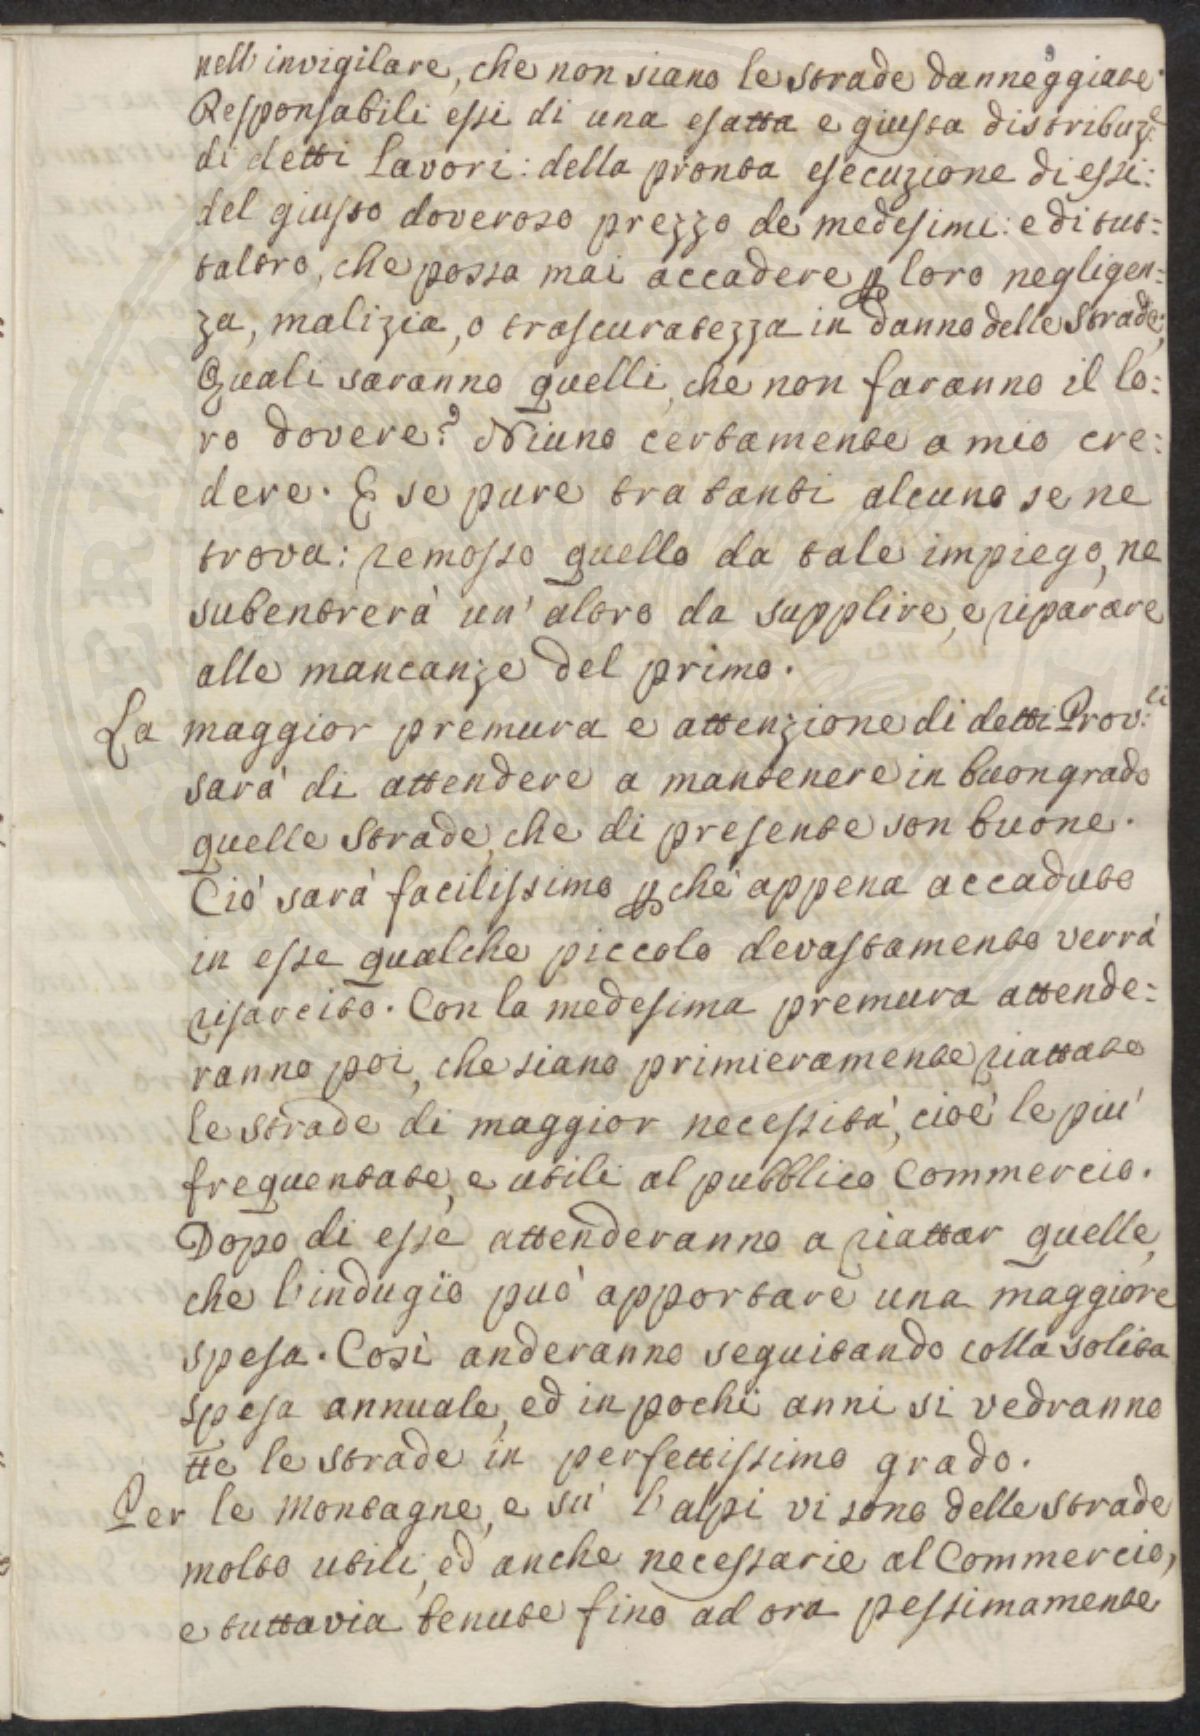 nell'invigilare, che non siano le strade danneggiate.
Responsabili essi di una esatta e giusta distribuz.e
di detti Lavori: della pronta esecuzione di essi:
del giusto doveroso prezzo de medesimi: e di tut=
taltro, che possa mai accadere ꝑ loro negligen=
za, malizia, o trascuratezza in danno delle Strade,
Quali saranno quelli, che non faranno il lo=
ro dovere? Niuno certamente a mio cre=
dere. E se pure tra tanti alcuno se ne
trova: remosso quello da tale impiego, ne
subentrerà un' altro da supplire, e riparare
alle mancanze del primo.
La maggior premura e attenzione di detti Prov.li
sarà di attendere a mantenere in buongrado
quelle Strade, che di presente son buone.
Ciò sarà facilissimo ꝑchè appena accaduto
in esse qualche piccolo devastamento verrà
risarcito. Con la medesima premura attende=
ranno poi, che siano primieramente riattate
le strade di maggior necessità, cioè le più
frequentate, e utili al pubblico Commercio.
Dopo di esse attenderanno a riattar quelle,
che l'indugio può apportare una maggiore
spesa. Così anderanno seguitando colla solita
spesa annuale, ed in pochi anni si vedranno
tte le strade in perfettissimo grado.
Per le Montagne, e sù l'alpi vi sono delle strade
molto utili, ed anche necessarie al Commercio,
e tuttavia tenute fino ad ora pessimamente